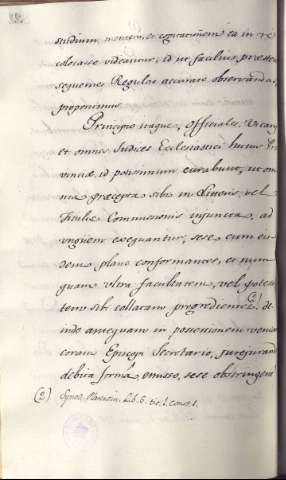 studium, mentem, et cogitationem ea in re
colocasse videamur, id ut facilius praeste
sequentes Regulas accurate observandas
proponimus
Principio itaque, Officiales, Vicarii
et omnes Judices Ecclesiastici hujus Pro
vinciae id potissimum curabunt, ut om
nia praecepta sibi in Literis, vel
Titulis Commissionis injuncta, ad
unguem exequantur, sese cum eis
dem plane conformantes, et num
quam ultra facultatem, vel potes
tatem sibi collatam progredientes (2) de
inde antequam in possessionem veniant
coram Episcopi Secretario, jurejurando
debita forma emisso, sese obstringent
(2) Synod. Lib. 6. tit. 1. const. 1.